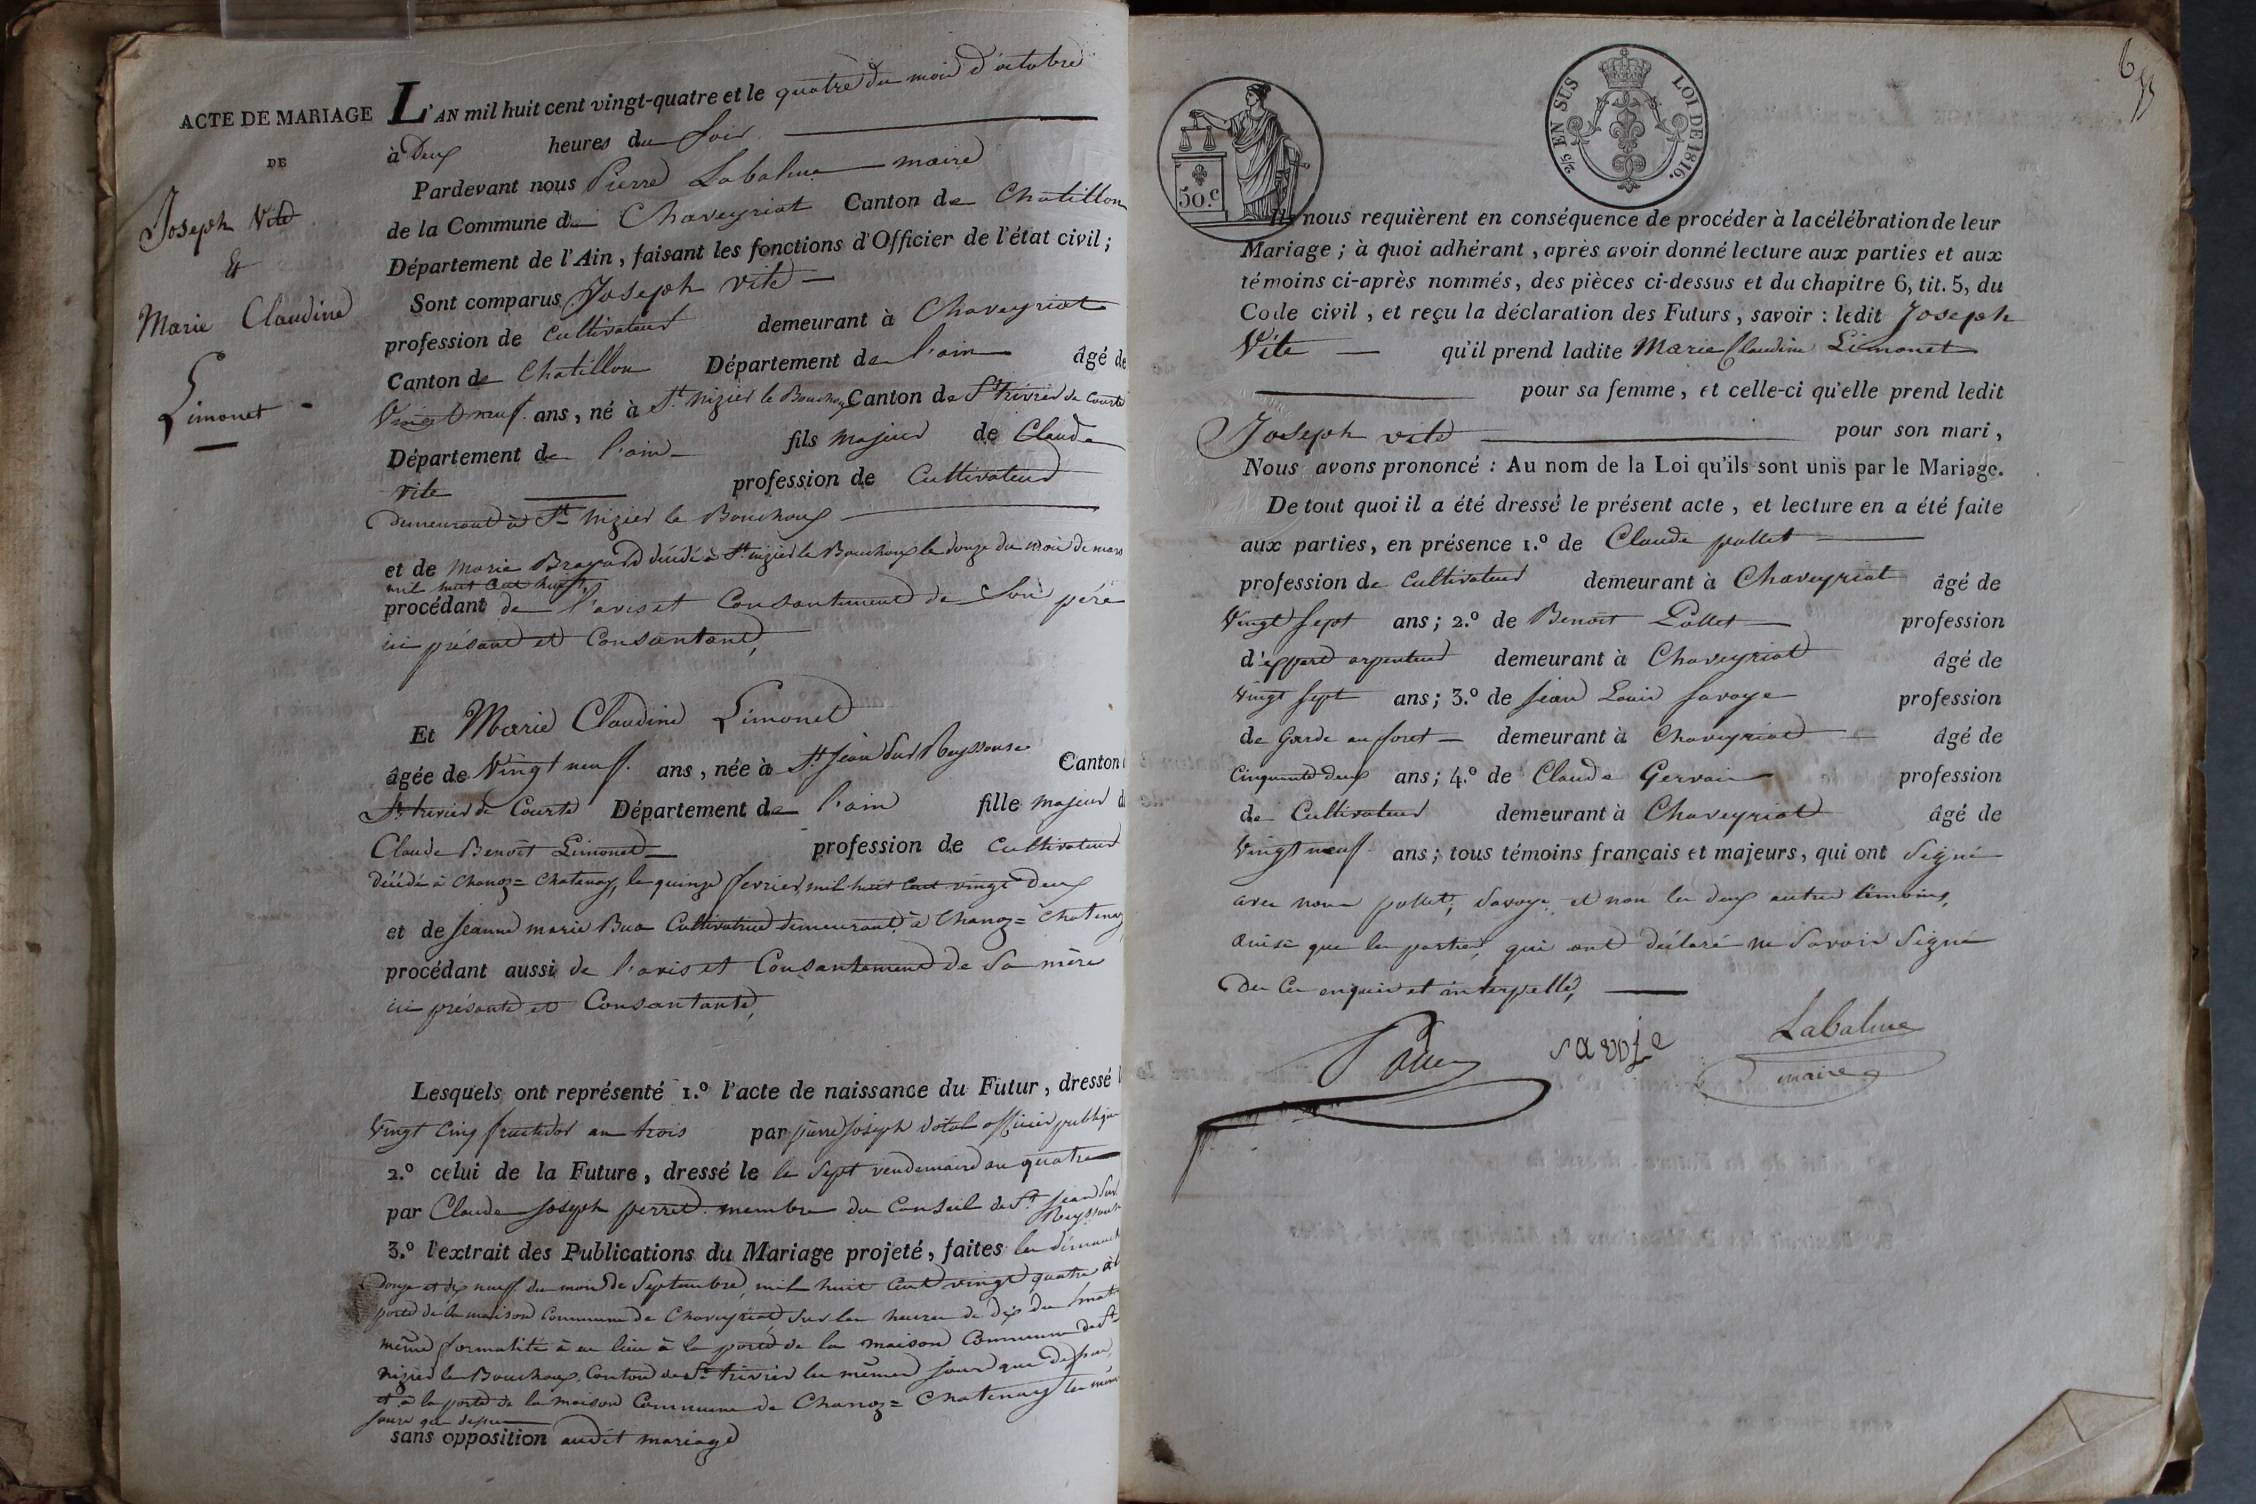 ACTE DE MARIAGE
DE
Joseph Vité
Et
Marie Claudine
Limonet
L'AN mil huit cent vingt-quatre et le quatre du mois d'octobre
à Deux heures du Soir
Pardevant nous Pierre Labalme maire
de la Commune de Chaveyriat Canton de Chatillon
Département de l'Ain, faisant les fonctions d'Officier de l'état civil;
Sont comparus Joseph vité
profession de Cultivateur demeurant à Chaveyriat
Canton de Chatillon Département de l'ain âgé de
Vingt neuf ans, né à St nizier le Bouchoux Canton de St trivier de Courte
Département de l'ain fils majeur de Claude
vite profession de Cultivateur
demeurant à St nizier le Bouchoux
et de Marie Brayard décédé à St nizier le Bouchoux le douze du mois de mars
mil huit Cent huit,
procédant de l'avis et Consantement de Son père
ici présant et Consantant,
Et Marie Claudine Limonet
âgée de Vingt neuf ans, née à St Jean Sur Reyssouse Canton
St trivier de Courte Département de l'ain fille majeur d
Claude Benoit Limonet profession de Cultivateur
décédé à Chanoz=Chatenay, le quinze fevrier mil huit Cent vingt deux
et de Jeanne marie Bua Cultivatrice demeurant à Chanoz=Chatenay
procédant aussi de l'avis et Consantement de Sa mère
ici présante et Consantante,
Lesquels ont représenté 1.º l'acte de naissance du Futur, dressé l
Vingt Cinq fructidor an trois par pierre Joseph officier publique
2.º celui de la Future, dressé le le Sept vendemiaire an quatre
par Claude Joseph perret membre du Conseil de St Jean Sur
Reyssouse
3.º l'extrait des Publications du Mariage projeté, faites les dimanch
Douze et dix neuf du mois de Septembre, mil huit Cent vingt quatre à l
porte de la maison Commune de Chaveyriat Sur les heures de dix du mat
même formalité à eu lieu à la porte de la maison Commune de St
nizier le Bouchoux Canton de St trivier les mêmes jours que dessus,
et à la porte de la maison Commune de Chanoz=Chatenay les mêm
jours que dessus
sans opposition audit mariage
50.C
2/5 EN SUS LOI DE 1816.
6
Ils nous requièrent en conséquence de procéder à la célébration de leur
Mariage; à quoi adhérant, après avoir donné lecture aux parties et aux
témoins ci-après nommés, des pièces ci-dessus et du chapitre 6, tit. 5, du
Code civil, et reçu la déclaration des Futurs, savoir: ledit Joseph
Vite qu'il prend ladite Marie Claudine Limonet
pour sa femme, et celle-ci qu'elle prend ledit
Joseph vité pour son mari,
Nous avons prononcé: Au nom de la Loi qu'ils sont unis par le Mariage.
De tout quoi il a été dressé le présent acte, et lecture en a été faite
aux parties, en présence 1.º de Claude pollet
profession de Cultivateur demeurant à Chaveyriat âgé de
Vingt Sept ans; 2.º de Benoit Pollet profession
d'expert arpenteur demeurant à Chaveyriat âgé de
Vingt Sept ans; 3.º de Jean Louis Savoye profession
de Garde au foret demeurant à Chaveyriat âgé de
Cinquante deux ans; 4.º de Claude Gervais profession
de Cultivateur demeurant à Chaveyriat âgé de
Vingt neuf ans; tous témoins français et majeurs, qui ont Signé
avec nous pollet, Savoye, et non les deux autres témoins,
ainsi que les parties, qui ont déclaré ne Savoir Signé
de Ce enquis et interpellés,
savoje
Labalme
maire